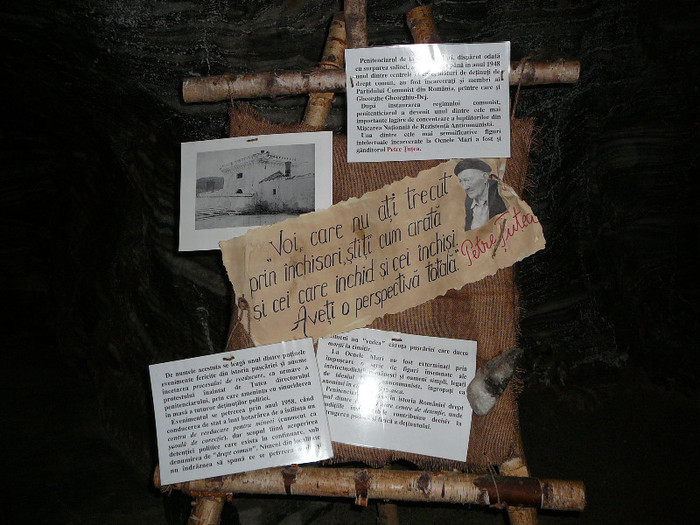 Penitenciarul de la dispărut odată
cu surparea salinei, până în anul 1948
unul dintre centrele de deținuți de
drept comun, au fost încarcerați și membri ai
Partidului Comunist din România, printre care și
Gheorghe Gheorghiu-Dej.
După instaurarea regimului comunist,
penitenciarul a devenit unul dintre cele mai
importante lagăre de concentrare a luptătorilor din
Mișcarea Națională de Rezistență Anticomunistă.
Una dintre cele mai semnificative figuri
intelectuale încarcerate la Ocnele Mari a fost și
gânditorul Petre Țuțea.
"Voi, care nu ați trecut
prin închisori, știți cum arată
și cei care închid și cei închiși.
Aveți o perspectivă totală."
Petre Țuțea
De numele acestuia se leagă unul dintre puținele
evenimente fericite din istoria pușcăriei și anume
încetarea procesului de reeducare, ca urmare a
protestului înaintat de Țuțea directorului
penitenciarului, prin care amenința cu sinuciderea
în masă a tuturor deținuților politici.
Evenimentul se petrecea prin anul 1958, când
conducerea de stat a luat hotărârea de a înființa un
centru de reeducare pentru minori (cunoscut ca
școală de corecție), dar scopul fiind acoperirea
detenției politice care exista în continuare, sub
denumirea de "drept comun". Nimeni din localitate
nu îndrăznea să spună ce se petrecea
unui nu "vedea" curtea pușcăriei care ducea
morți la cimitir.
La Ocnele Mari au fost exterminați prin
împușcare figuri însemnate ale
intelectualității și oameni simpli, legați
de idealul anticomunist, îngropați ca
anonimi în
Penitenciarul în istoria României drept
unul dintre centre de detenție, unde
condițiile contribuiau decisiv la
distrugerea fizică a deținutului.